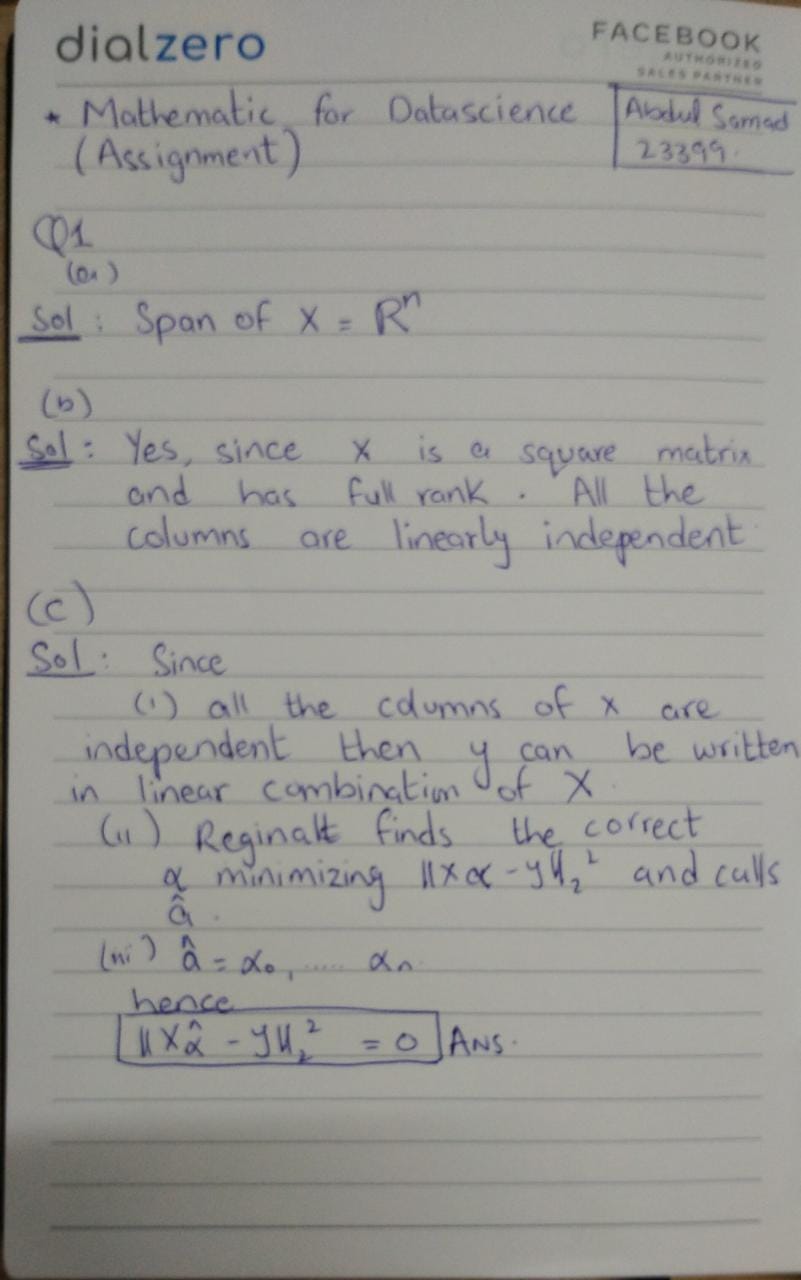 dialzero
FACEBOOK
AUTHORIZED
SALES PARTNER
* Mathematic for Datascience
(Assignment)
Abdul Samad
23399.
Q1
(a)
Sol : Span of X = Rⁿ
(b)
Sol : Yes, since X is a square matrix
and has full rank . All the
columns are linearly independent
(c)
Sol : Since
(i) all the columns of x are
independent then y can be written
in linear combination of X.
(ii) Reginalt finds the correct
α minimizing ||Xα - y||₂² and calls
â .
(iii) â = α₀, ..... αₙ
hence
||Xα̂ - y||₂² = 0 Ans.